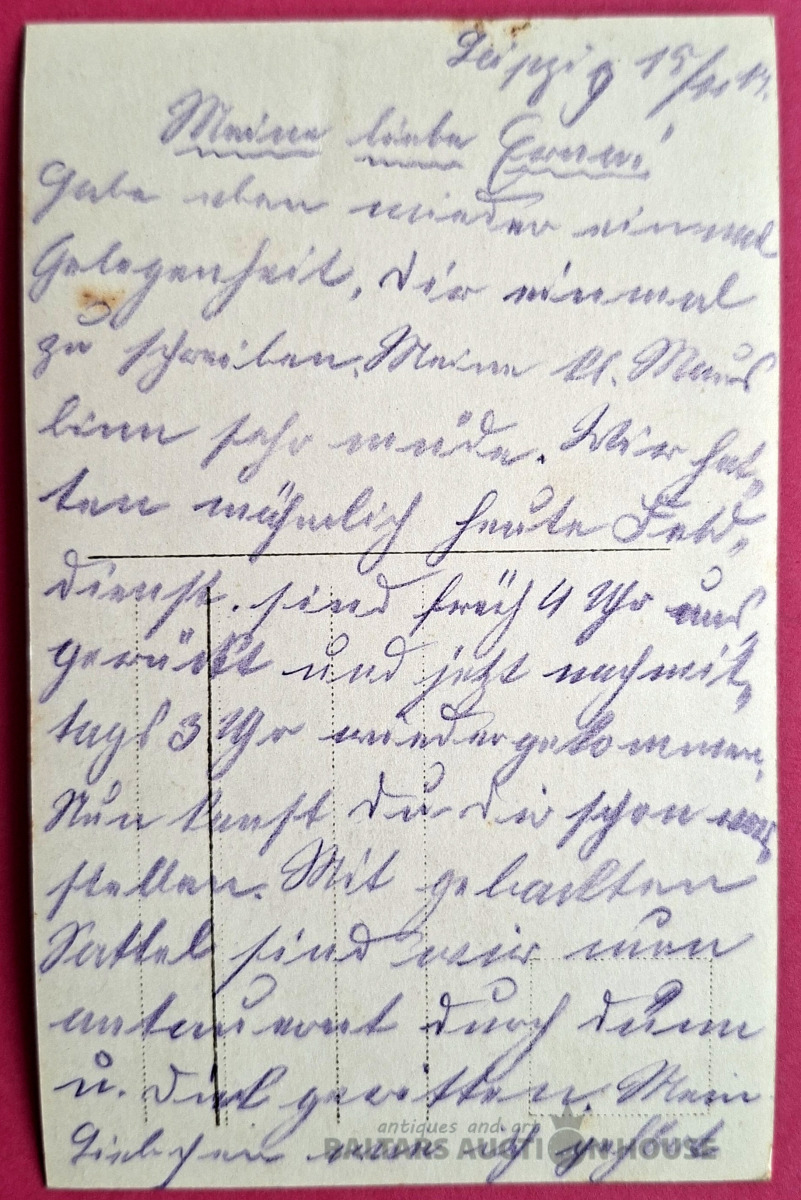 Leipzig 15/
Meine liebe Emmi!
Habe eben wieder einmal
Gelegenheit, Dir einmal
zu schreiben. Meine kl. Maus
binn sehr müde. Wir hat-
ten nähmlich heute Feld-
dienst. sind früh 4 Uhr aus
gerückt und jetzt nachmit-
tags 3 Uhr wiedergekommen.
Nun kanst Du Dir schon vor
stellen. Mit gebackten
Sattel sind wir nun
durch dünn
u. dick geritten. Mein
Liebchen
antiques and art
BALTARS AUCTION HOUSE